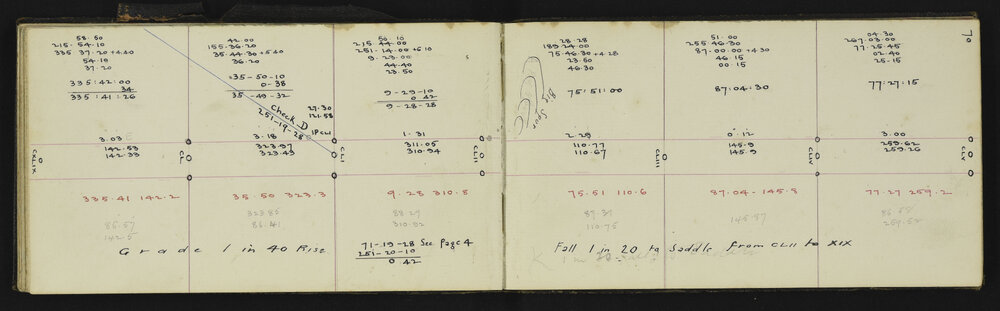 58.50
215.54.10
335 37.20 +4.40
54.10
37.20
335:42:00
34
335:41:26
3.03 E
142.53
142.33
CXLIX
335.41 142.2
86.57
142.5
42.00
155.36.20
35.44.30 +5.40
36.20
35-50-10
0-38
35-49-32
Check D
251-19-28
27.30
121.58
3.18
IP CLI
323.97
323.43
CL
35.50 323.3
323.82
86.41
Grade 1 in 40 Rise
50 10
215 44.00
251.14.00 +6 10
9-23.00
44.40
23.50
9-29-10
0 42
9-28-28
1.31
311.05
310.94
CLI
9.28 310.8
88.27
310.92
71-19-28 See Page 4
251-20-10
0 42
28.28
189.24.00
75.46.30 +4 28
23.50
46.30
75:51:00
Big Spur
2.29
110.77
110.67
75.51 110.6
87.39
110.75
51.00
255.46.30
87.00.00 +4 30
46.15
00 15
87:04:30
0.12
145.9
145.9
CLIII
87.04-145.8
145.87
Fall 1 in 20 to Saddle from CLII to XIX
70
04.30
267.03.00
77.25.45
02.40
25.15
77:27:15
3.00
259.62
259.26
CLV
77.27 259.2
259.52